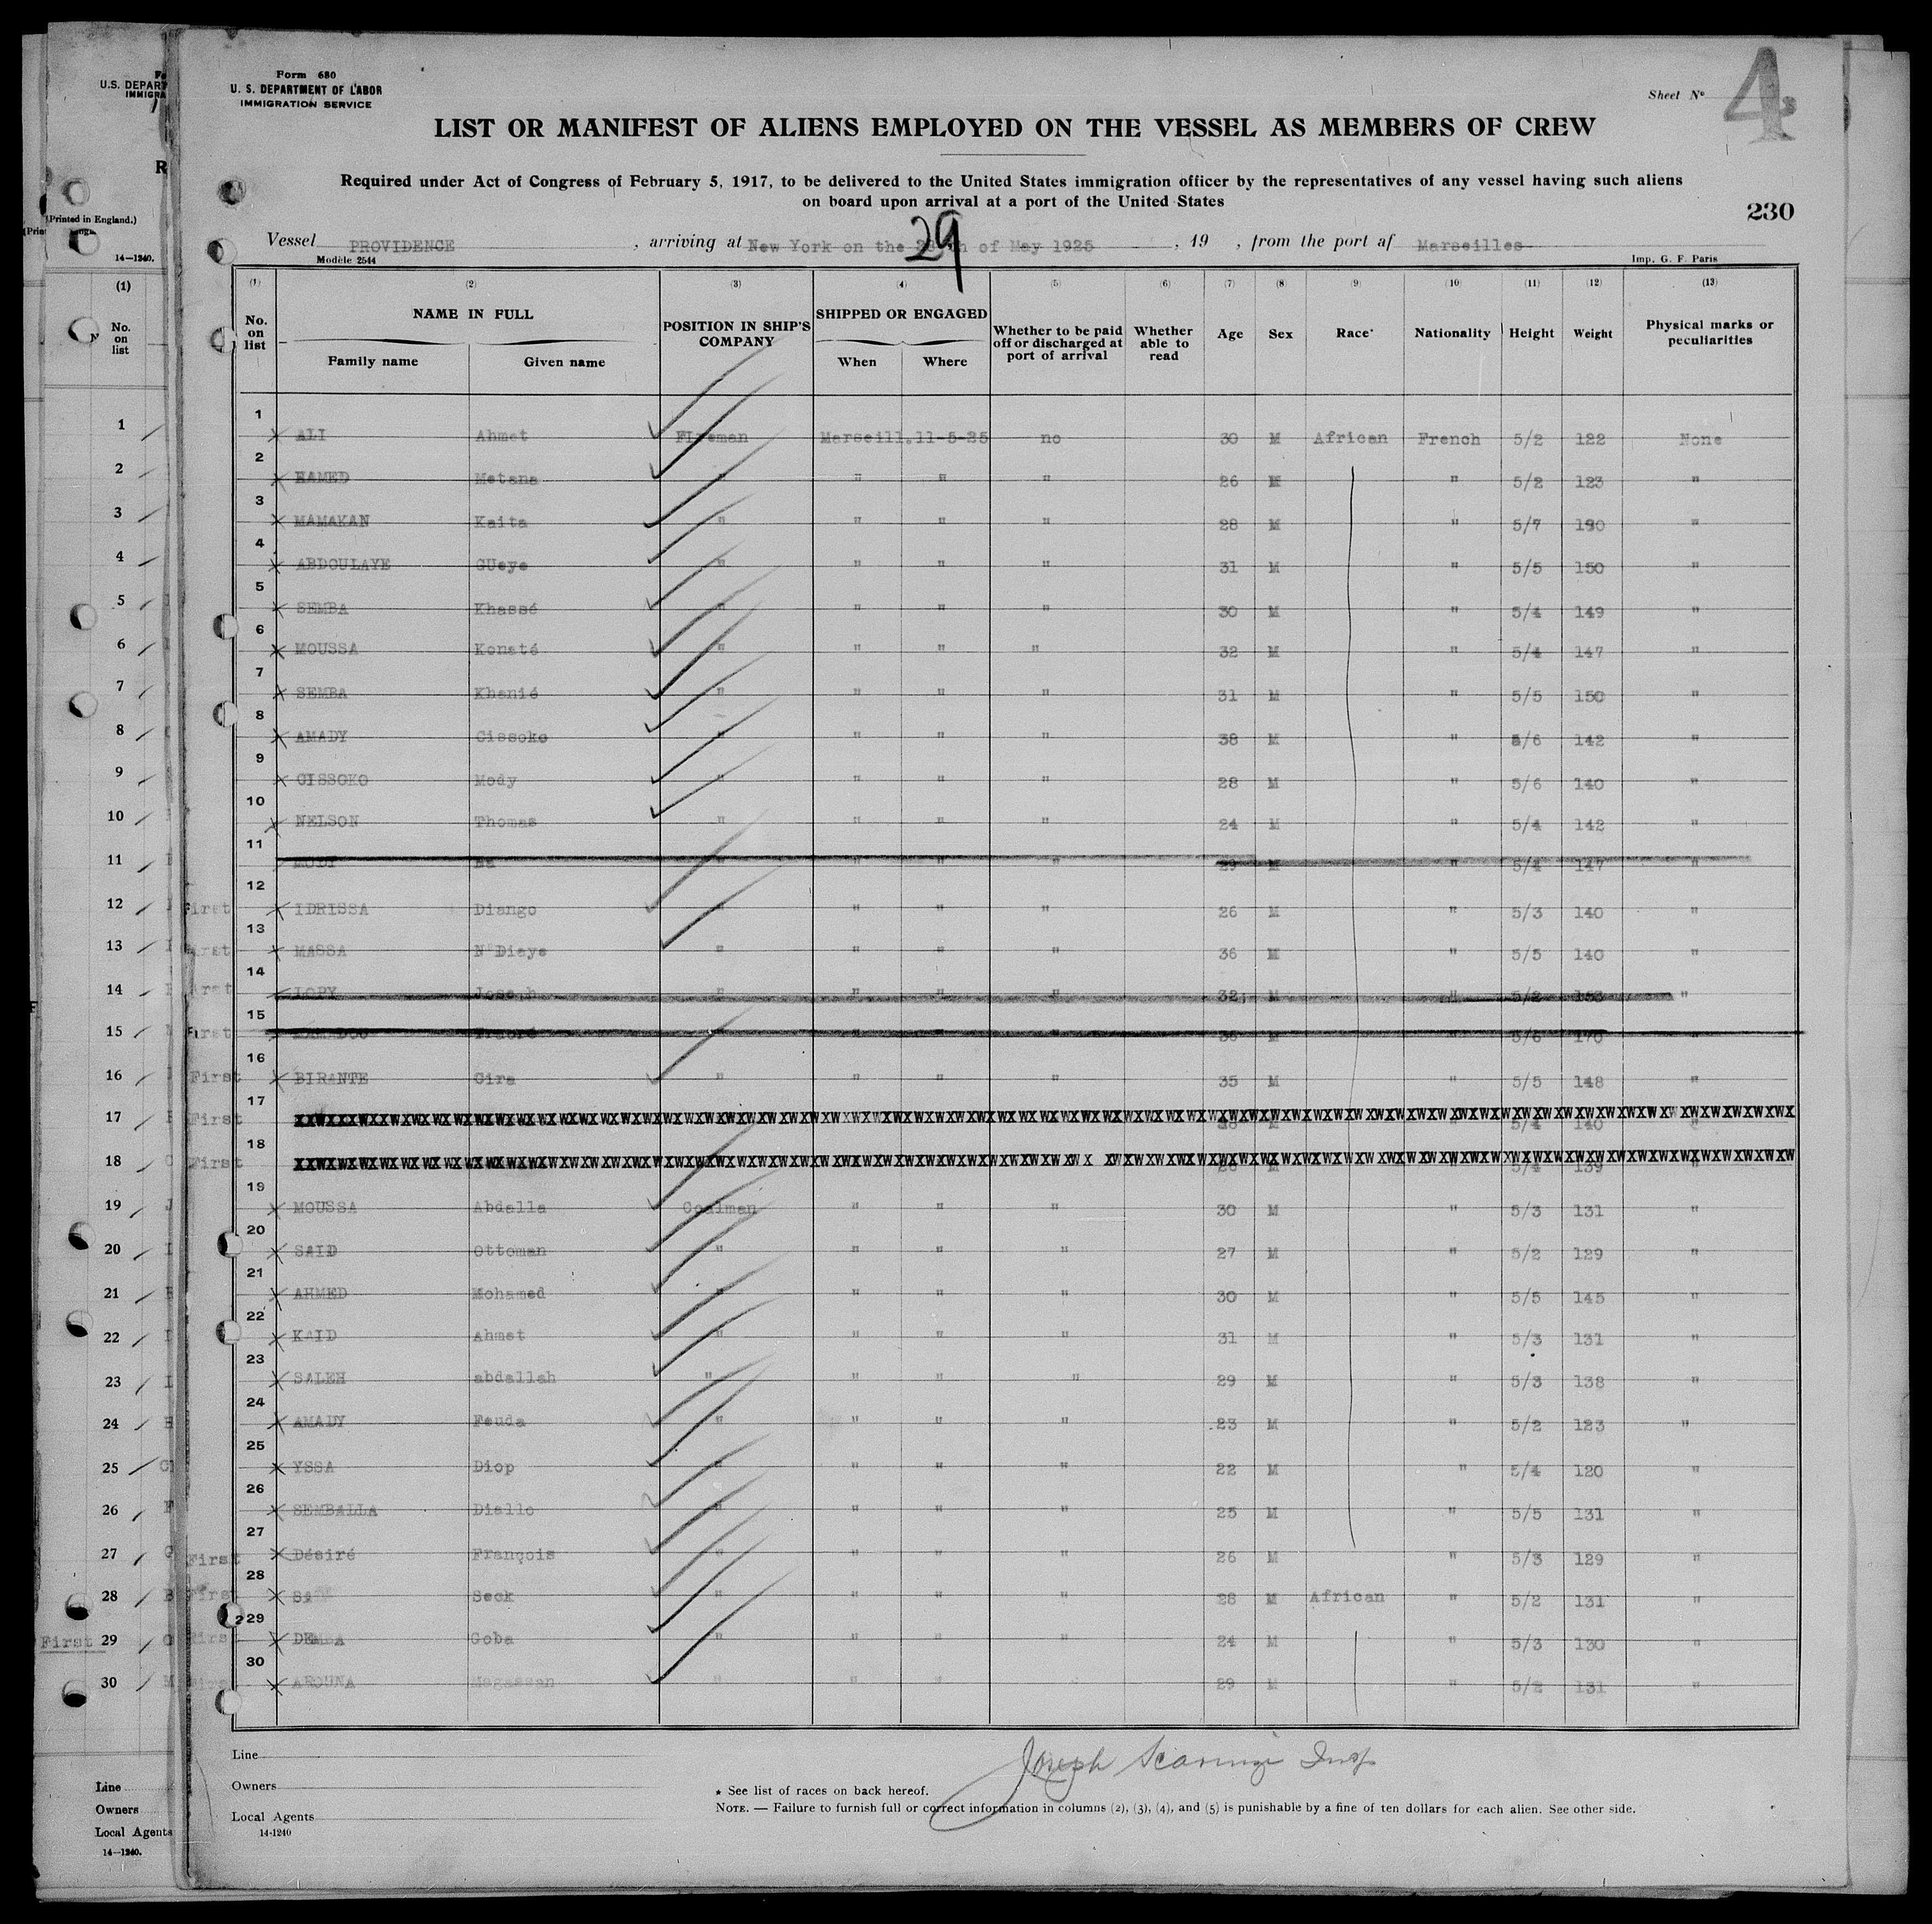 Form 680
U. S. DEPARTMENT OF LABOR
IMMIGRATION SERVICE
Sheet No 4
LIST OR MANIFEST OF ALIENS EMPLOYED ON THE VESSEL AS MEMBERS OF CREW
Required under Act of Congress of February 5, 1917, to be delivered to the United States immigration officer by the representatives of any vessel having such aliens
on board upon arrival at a port of the United States
230
29
Vessel PROVIDENCE , arriving at New York on the of May 1925 , 19 , from the port af Marseilles
Modèle 2544 Imp. G. F. Paris
(1) (2) (3) (4) (5) (6) (7) (8) (9) (10) (11) (12) (13)
No. on list NAME IN FULL Family name Given name POSITION IN SHIP'S COMPANY SHIPPED OR ENGAGED When Where Whether to be paid off or discharged at port of arrival Whether able to read Age Sex Race* Nationality Height Weight Physical marks or peculiarities
1 ALI Ahmet Fireman Marseill. 11-5-25 no 30 M African French 5/2 122 None
2 HAMED Metana " " " " 26 M " 5/2 123 "
3 MAMAKAN Keita " " " " 28 M " 5/7 190 "
4 ABDOULAYE GUeye " " " " 31 M " 5/5 150 "
5 SEMBA Khassé " " " " 30 M " 5/4 149 "
6 MOUSSA Konaté " " " " 32 M " 5/4 147 "
7 SEMBA Khanié " " " " 31 M " 5/5 150 "
8 AMADY Cissoko " " " " 38 M " 5/6 142 "
9 CISSOKO Mody " " " " 28 M " 5/6 140 "
10 NELSON Thomas " " " " 24 M " 5/4 142 "
11 MODY Ba " " " " 29 M " 5/4 147 "
12 IDRISSA Diango " " " " 26 M " 5/3 140 "
13 MASSA N'Diaye " " " " 36 M " 5/5 140 "
14 LOPY Joseph " " " " 32 M " 5/2 153 "
15 MAMADOU Traoré " " " " 36 M " 5/6 170 "
16 BIRANTE Cira " " " " 35 M " 5/5 148 "
17 5/4 140 "
18 5/4 139 "
19 MOUSSA Abdalla Coalman " " " 30 M " 5/3 131 "
20 SAID Ottoman " " " " 27 M " 5/2 129 "
21 AHMED Mohamed " " " " 30 M " 5/5 145 "
22 KAID Ahmet " " " " 31 M " 5/3 131 "
23 SALEH abdallah " " " " 29 M " 5/3 138 "
24 AMADY Feuda " " " " 23 M " 5/2 123 "
25 YSSA Diop " " " " 22 M " 5/4 120 "
26 SEMBALLA Diallo " " " " 25 M " 5/5 131 "
27 Désiré François " " " " 26 M " 5/3 129 "
28 Seck " " " " 28 M African " 5/2 131 "
29 DEMBA Goba " " " " 24 M " 5/3 130 "
30 AROUNA Magassan " " " 29 M " 5/2 131 "
Line
Owners
Local Agents
14-1240
Joseph Insp
* See list of races on back hereof.
NOTE. — Failure to furnish full or correct information in columns (2), (3), (4), and (5) is punishable by a fine of ten dollars for each alien. See other side.